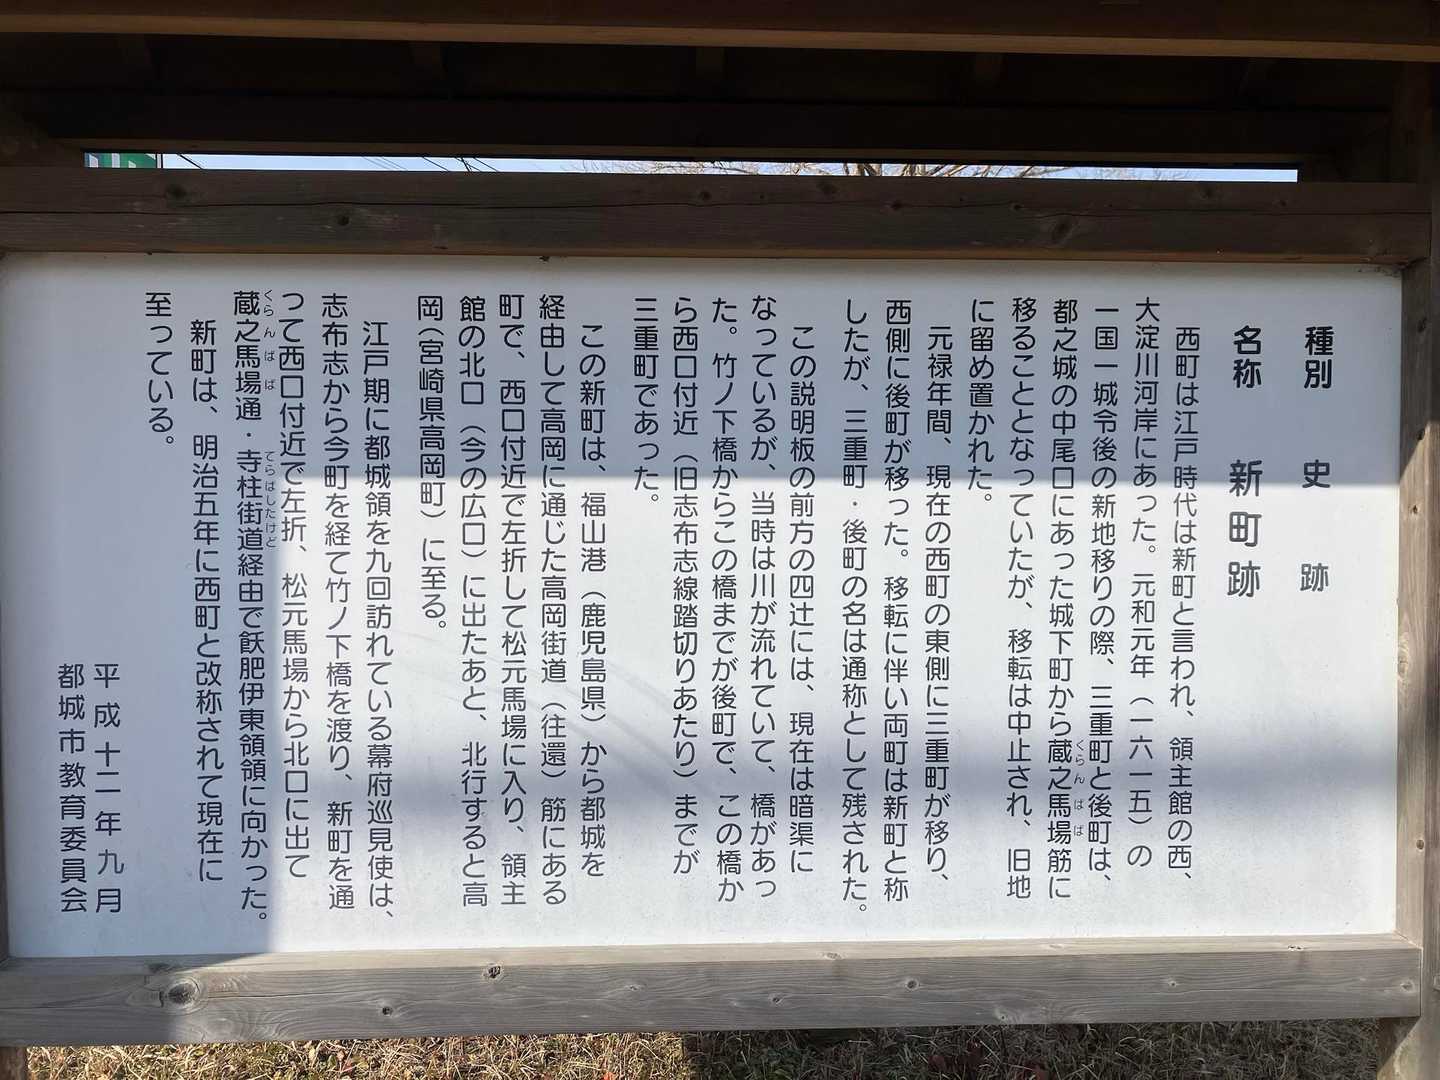 種別　史跡
名称　新町跡
西町は江戸時代は新町と言われ、領主館の西、
大淀川河岸にあった。元和元年（一六一五）の
一国一城令後の新地移りの際、三重町と後町は、
都之城の中尾口にあった城下町から蔵之馬場筋に
くらんばば
移ることとなっていたが、移転は中止され、旧地
に留め置かれた。
元禄年間、現在の西町の東側に三重町が移り、
西側に後町が移った。移転に伴い両町は新町と称
したが、三重町・後町の名は通称として残された。
この説明板の前方の四辻には、現在は暗渠に
なっているが、当時は川が流れていて、橋があっ
た。竹ノ下橋からこの橋までが後町で、この橋か
ら西口付近（旧志布志線踏切りあたり）までが
三重町であった。
この新町は、福山港（鹿児島県）から都城を
経由して高岡に通じた高岡街道（往還）筋にある
町で、西口付近で左折して松元馬場に入り、領主
館の北口（今の広口）に出たあと、北行すると高
岡（宮崎県高岡町）に至る。
江戸期に都城領を九回訪れている幕府巡見使は、
志布志から今町を経て竹ノ下橋を渡り、新町を通
って西口付近で左折、松元馬場から北口に出て
蔵之馬場通・寺柱街道経由で飫肥伊東領に向かった。
くらんばば　てらばしたけど
新町は、明治五年に西町と改称されて現在に
至っている。
平成十二年九月
都城市教育委員会